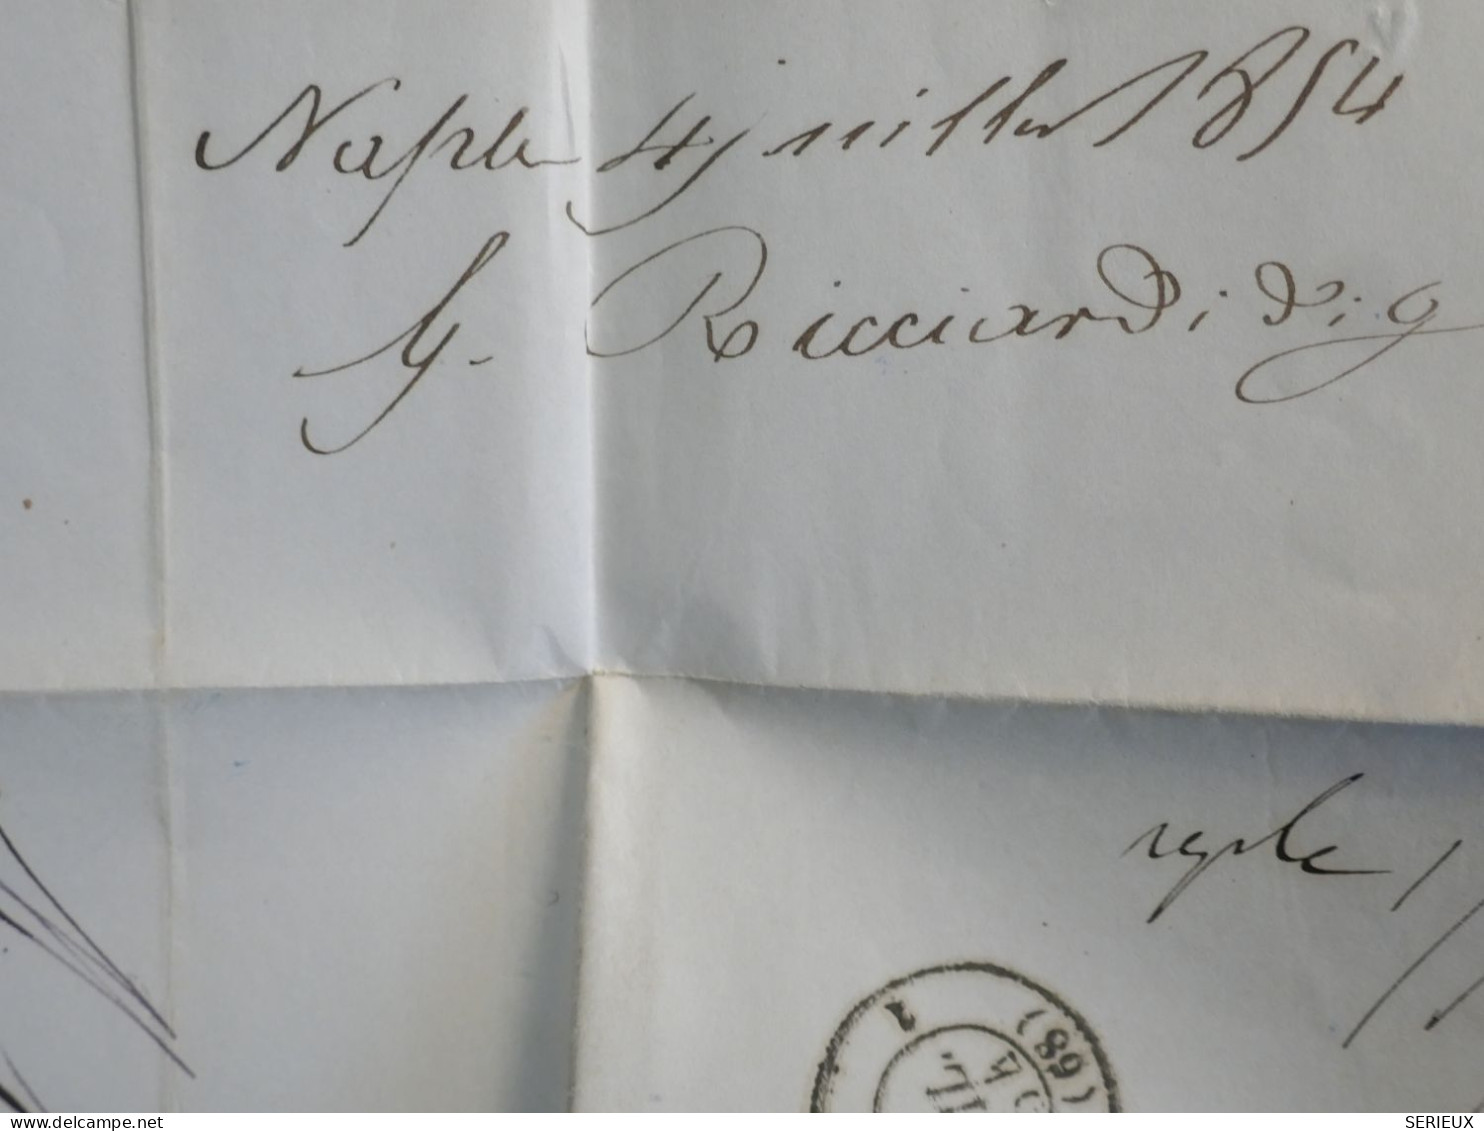 Naples 4 juillet 1854
G. Ricciardi di g
(68)
www.delcampe.net
SERIEUX